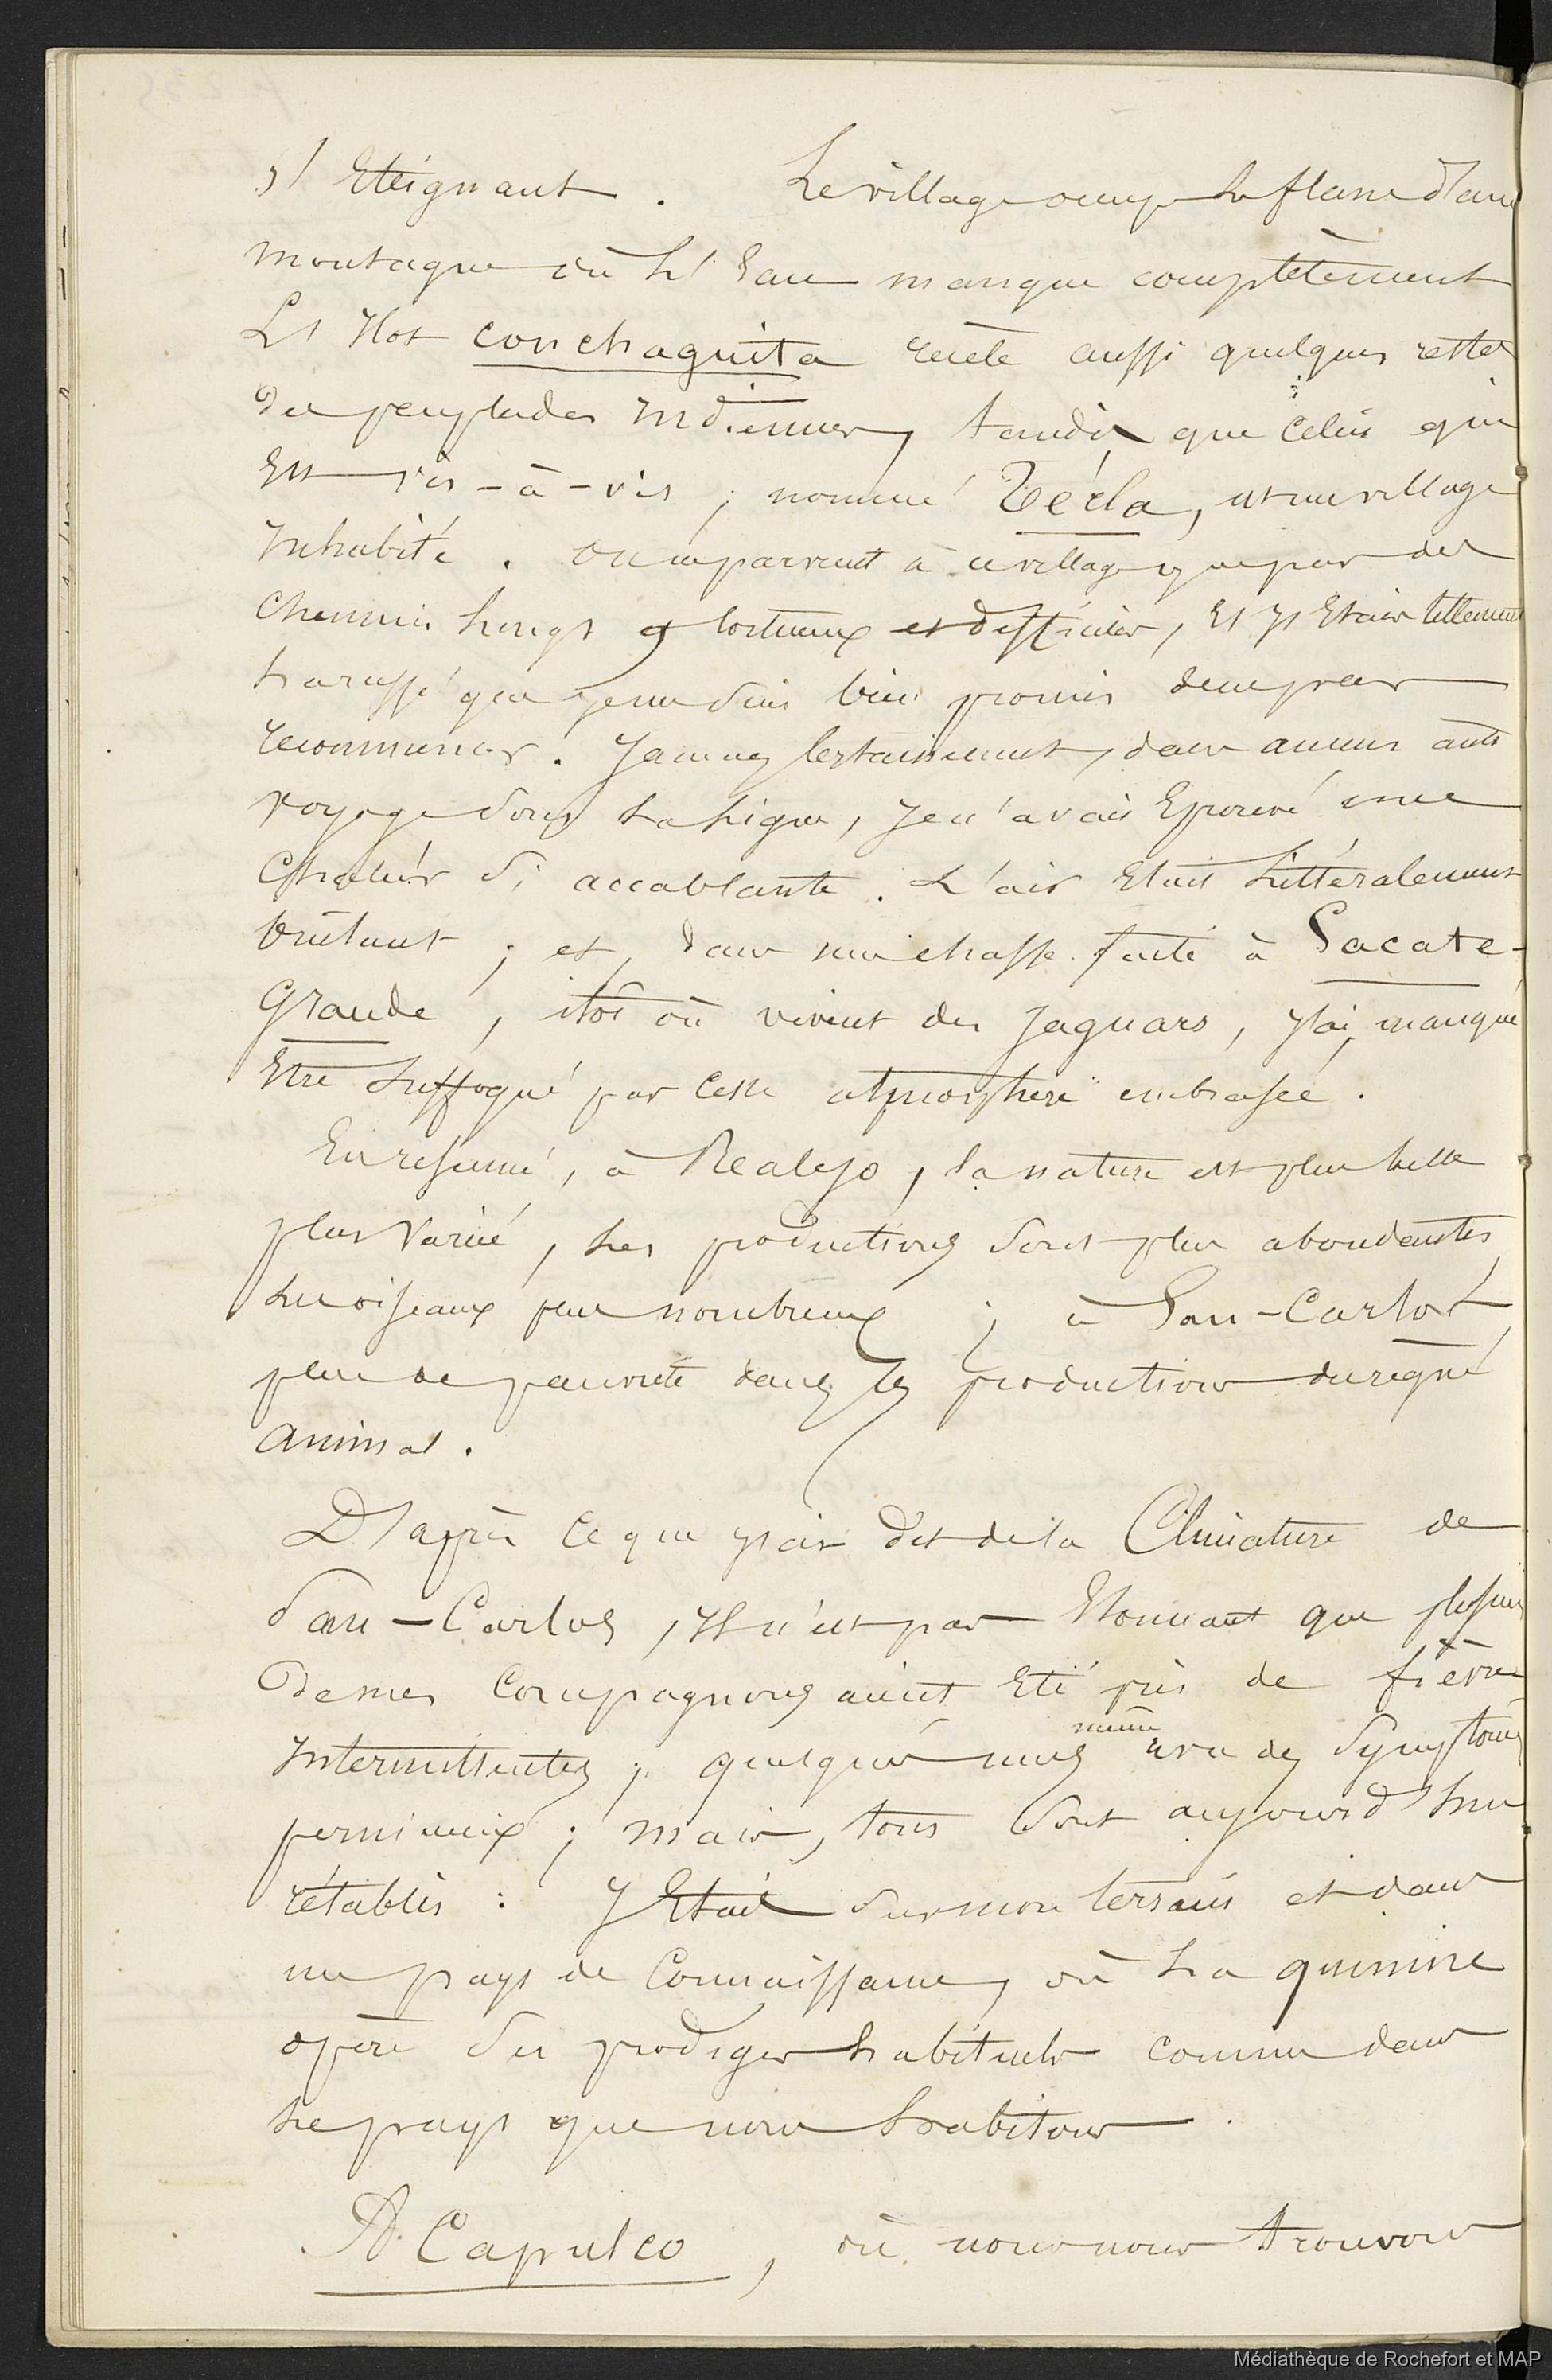 s' Eteignant. Le village occupe le flanc d'une
montagne où L' Eau manque complètement
L' Ilot conchaguita récèle aussi quelques restes
de peuplades Indiennes, tandis que celui qui
Est vis-à-vis, nommé Técla, est un village
Inhabité. On ne parvient à ce village que par des
chemins Longs et tortueux et difficiles, Et J' Etais tellement
harassé que je me suis bien promis de ne pas
recommencer. Jamais certainement, dans aucun autre
voyage sous La Ligne, Je n'avais Eprouvé une
Chaleur si accablante. L'air Etait Littéralement
brûlant ; et, dans une chasse faite à Sacate-
Grande, ilot où vivent des Jaguars, J'ai manqué
Etre suffoqué par cette atmosphère embrasée.
En resumé, à Realejo, La nature est plus belle
plus variée, Les productions sont plus abondantes,
Les oiseaux plus nombreux ; à San-Carlos
plus de pauvreté dans les productions du règne
animal.
D'après ce que J'ai dit de la Climature de
San-Carlos, Il n'est pas Etonnant que plusieurs
de mes compagnons aient Eté pris de fièvres
Intermittentes ; quelques uns même avec des symptômes
pernicieux ; mais, tous sont aujourd'hui
rétablis : J'Etais sur mon terrain et dans
un pays de connaissance, où La quinine
opère des prodiges habituels comme dans
Le pays que nous habitons.
A Capulco, où nous nous trouvons
Médiathèque de Rochefort et MAP